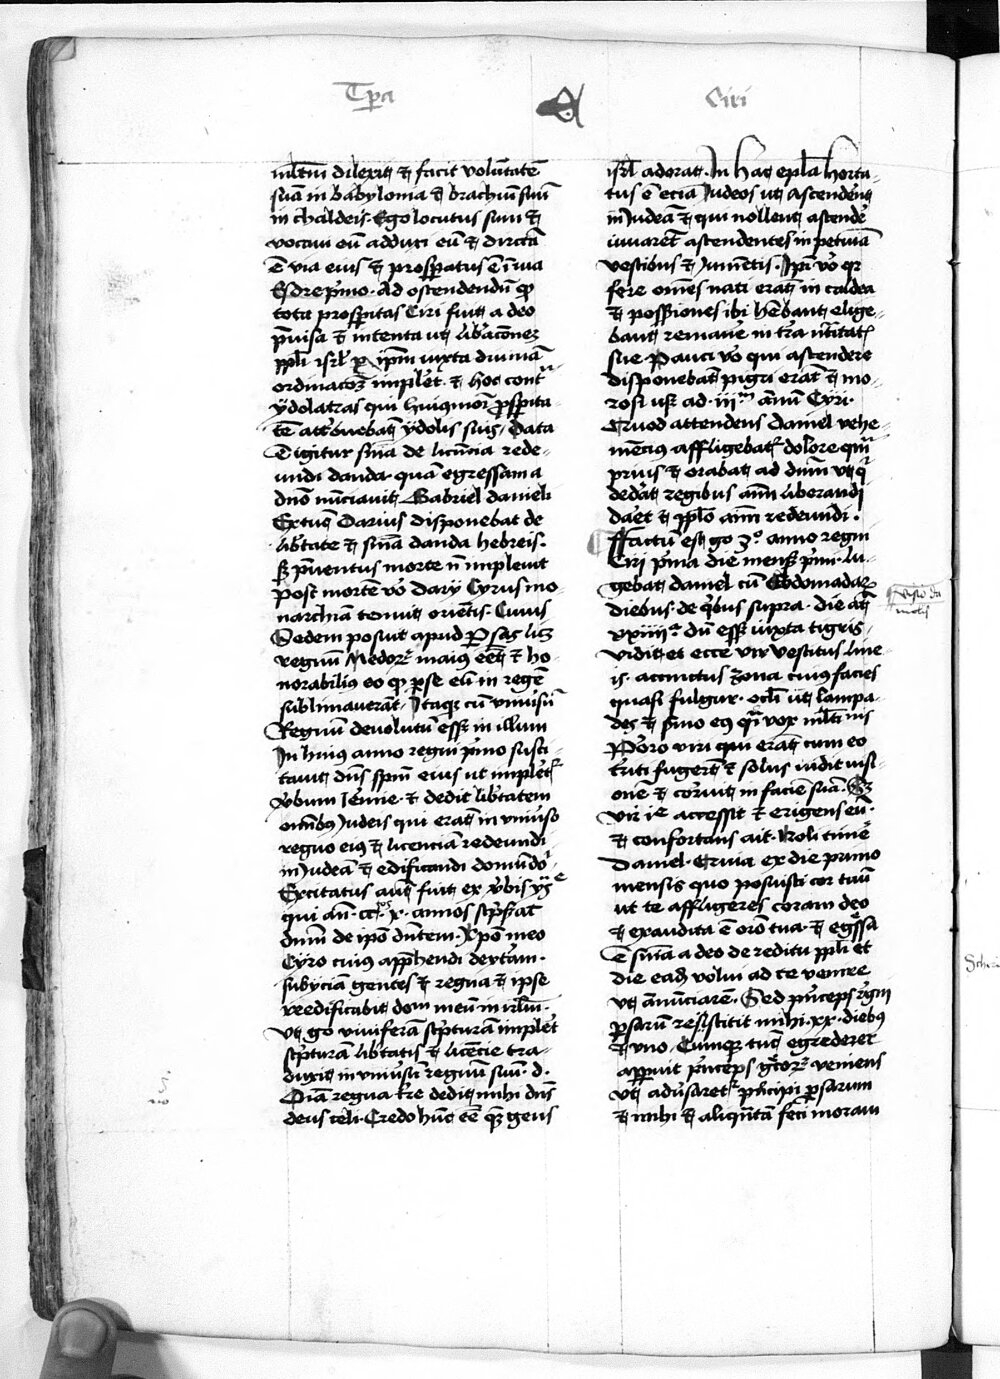 Tpa Ciri
ml̅tm̅ dilexit & facit volu̅tate̅
sua̅ in babylonia & brachiu̅ suu̅
in chaldeis. Ego locutus sum &
vocaui eu̅ adduxi eu̅ & directa
e̅ via eius & prosperatus e̅ i̅ uia
Esdre p̅mo. Ad ostendendu̅ q̃
tota prosp̅itas Ciri fuit a deo
p̅uisa & intenta ut lib̅aco̅nez
pp̅li isrl̅ per ip̅m iuxta diuina̅
ordinaco̅z implet. & hoc cont̃
ydolatras qui huiusmo̅i p̅sp̅ita-
te̅ att̃buebat ydolis suis. Data
e̅ igitur sn̅ia de lice̅ncia rede-
undi danda. quam egressam a
dn̅o nu̅nciauit Gabriel danieli
Et tu̅c Darius disponebat de
lib̅tate & sn̅ia danda hebreis.
s̅ p̅uentus morte n̅ impleuit
post morte̅ v̅o dary Cyrus mo-
narchia̅ tenuit orie̅tis. Cuius
Sedem posuit apud Persas licz
regnu̅ Medorz maius e̅et & ho-
norabilius eo q̃ p̅se eu̅ in rege̅
sublimauera̅t. Itaq; cu̅ vniu̅su̅
Regnu̅ deuolutu̅ esset in illum
In huius anno regni p̅mo susci-
tauit dn̅s sp̅m eius ut implet̃
v̅bum Ie̅mie. & dedit lib̅tatem
om̅ibus Iudeis qui erat in vniu̅so
regno eius & licencia̅ redeundi
in Iudea̅ & edificandi domu̅ do̅i
Excitatus aut̅ fuit ex v̅bis ys̅e
qui an̅. ccos. x. annos sc̅ps̅at
dn̅m de ip̅o dn̅tem. Xp̅o meo
Cyro cuius app̅hendi dexta̅m.
subycia̅ gentes & regna & ipse
reedificabit dom̅ meu̅ in irl̅m.
Ut g̊o viuifera̅ sc̅ptura̅ implet
sc̅ptura̅ lib̅tatis & lice̅cie tra-
duxit in vniu̅su̅ regnu̅ suu̅. d.
O̅ia̅ regna t̅re dedit mihi dn̅s
deus celi. Credo hu̅c e̅e quez gens
isrl̅ adorat. In hac epl̅a horta-
tus e̅ ecia̅ Iudeos ut ascendent
in Iudea̅ & qui nollent ascende̅
iuuaret ascendentes in pecunia̅
vestibus & Iume̅tis. Ip̅i v̅o qr
fere om̅es nati erat in caldea
& possessiones ibi he̅bant elige-
bant remane̅ in t̅ra
sue. Pauci v̅o qui ascendere
disponebat pigri erat & mo-
rosi usq̃ ad. iiim. annu̅ Cyri.
Quod attendens daniel vehe-
me̅cius affligebat̃ dolore
prius & orabat ad dn̅m ut
dedat regibus anim̅ liberandi
daret & pp̅lo anim̅ redeundi.
Factu̅ est g̊o 3.o anno regni
Ciri p̅ma die mens̃ p̅mi. Lu-
gebat daniel cu̅ Ebdomadar̃
diebus. de q̃bus supra. die at̅
xxiiiia. du̅ esset iuxta tigris-
vidit et ecce vir vestitus line-
is. accinctus zona cuius facies
quasi fulgur. ocl̅i ut lampa-
des & s̅mo eius q̃i vox ml̅titi̅s
Porro viri qui erat cum eo
t̅riti fugeru̅t & solus uidit visi-
one̅ & corruit in facie̅ sua̅. Et
vir ie accessit & erigens eu̅.
& confortans ait. Noli time̅
Daniel. Quia ex die primo
mensis quo posuisti cor tuu̅
ut te affligeres coram deo
& exaudita e̅ oro̅ tua. & egr̃ssa
e̅ sn̅ia a deo de reditu pp̅li et
die eade̅ volui ad te venire
ut a̅nunciare̅. Sed p̅nceps regni
persaru̅ resistitit mihi. xx. diebus
& uno. Cumq̃ tu̅c egrederer
apparuit p̅nceps g̃corz veniens
ut adu̅saret̃ p̅ncipi persarum
& mihi & aliqu̅ta̅ feci moram
visio da
nielis